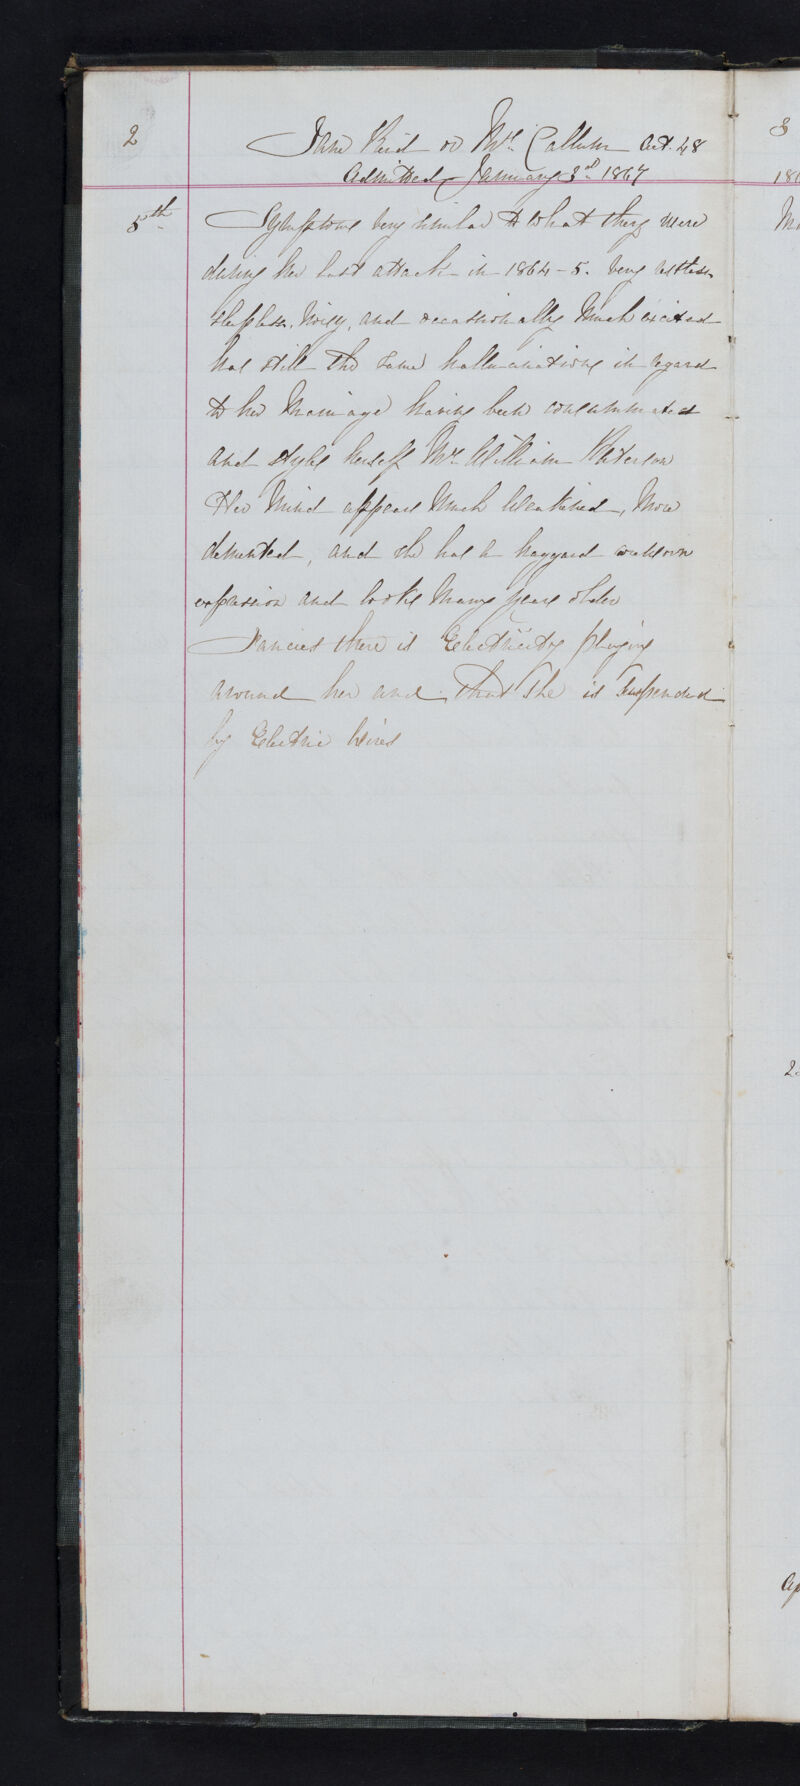 2
Jane Reid or McCallum Aet. 48
Admitted January 3d 1867
5th
Symptoms very similar to what they were
during her last attack in 1864-5. being restless
sleepless, noisy, and occasionally much excited
has still the same hallucinations in regard
to her marriage having been consummated
and styles herself Mrs William Paterson
Her mind appears much weakened, more
demented, and she has a haggard careworn
expression and looks many years older
Fancies there is Electricity playing
around her and that she is suspended
by Electric wires
3
186
2
Ap